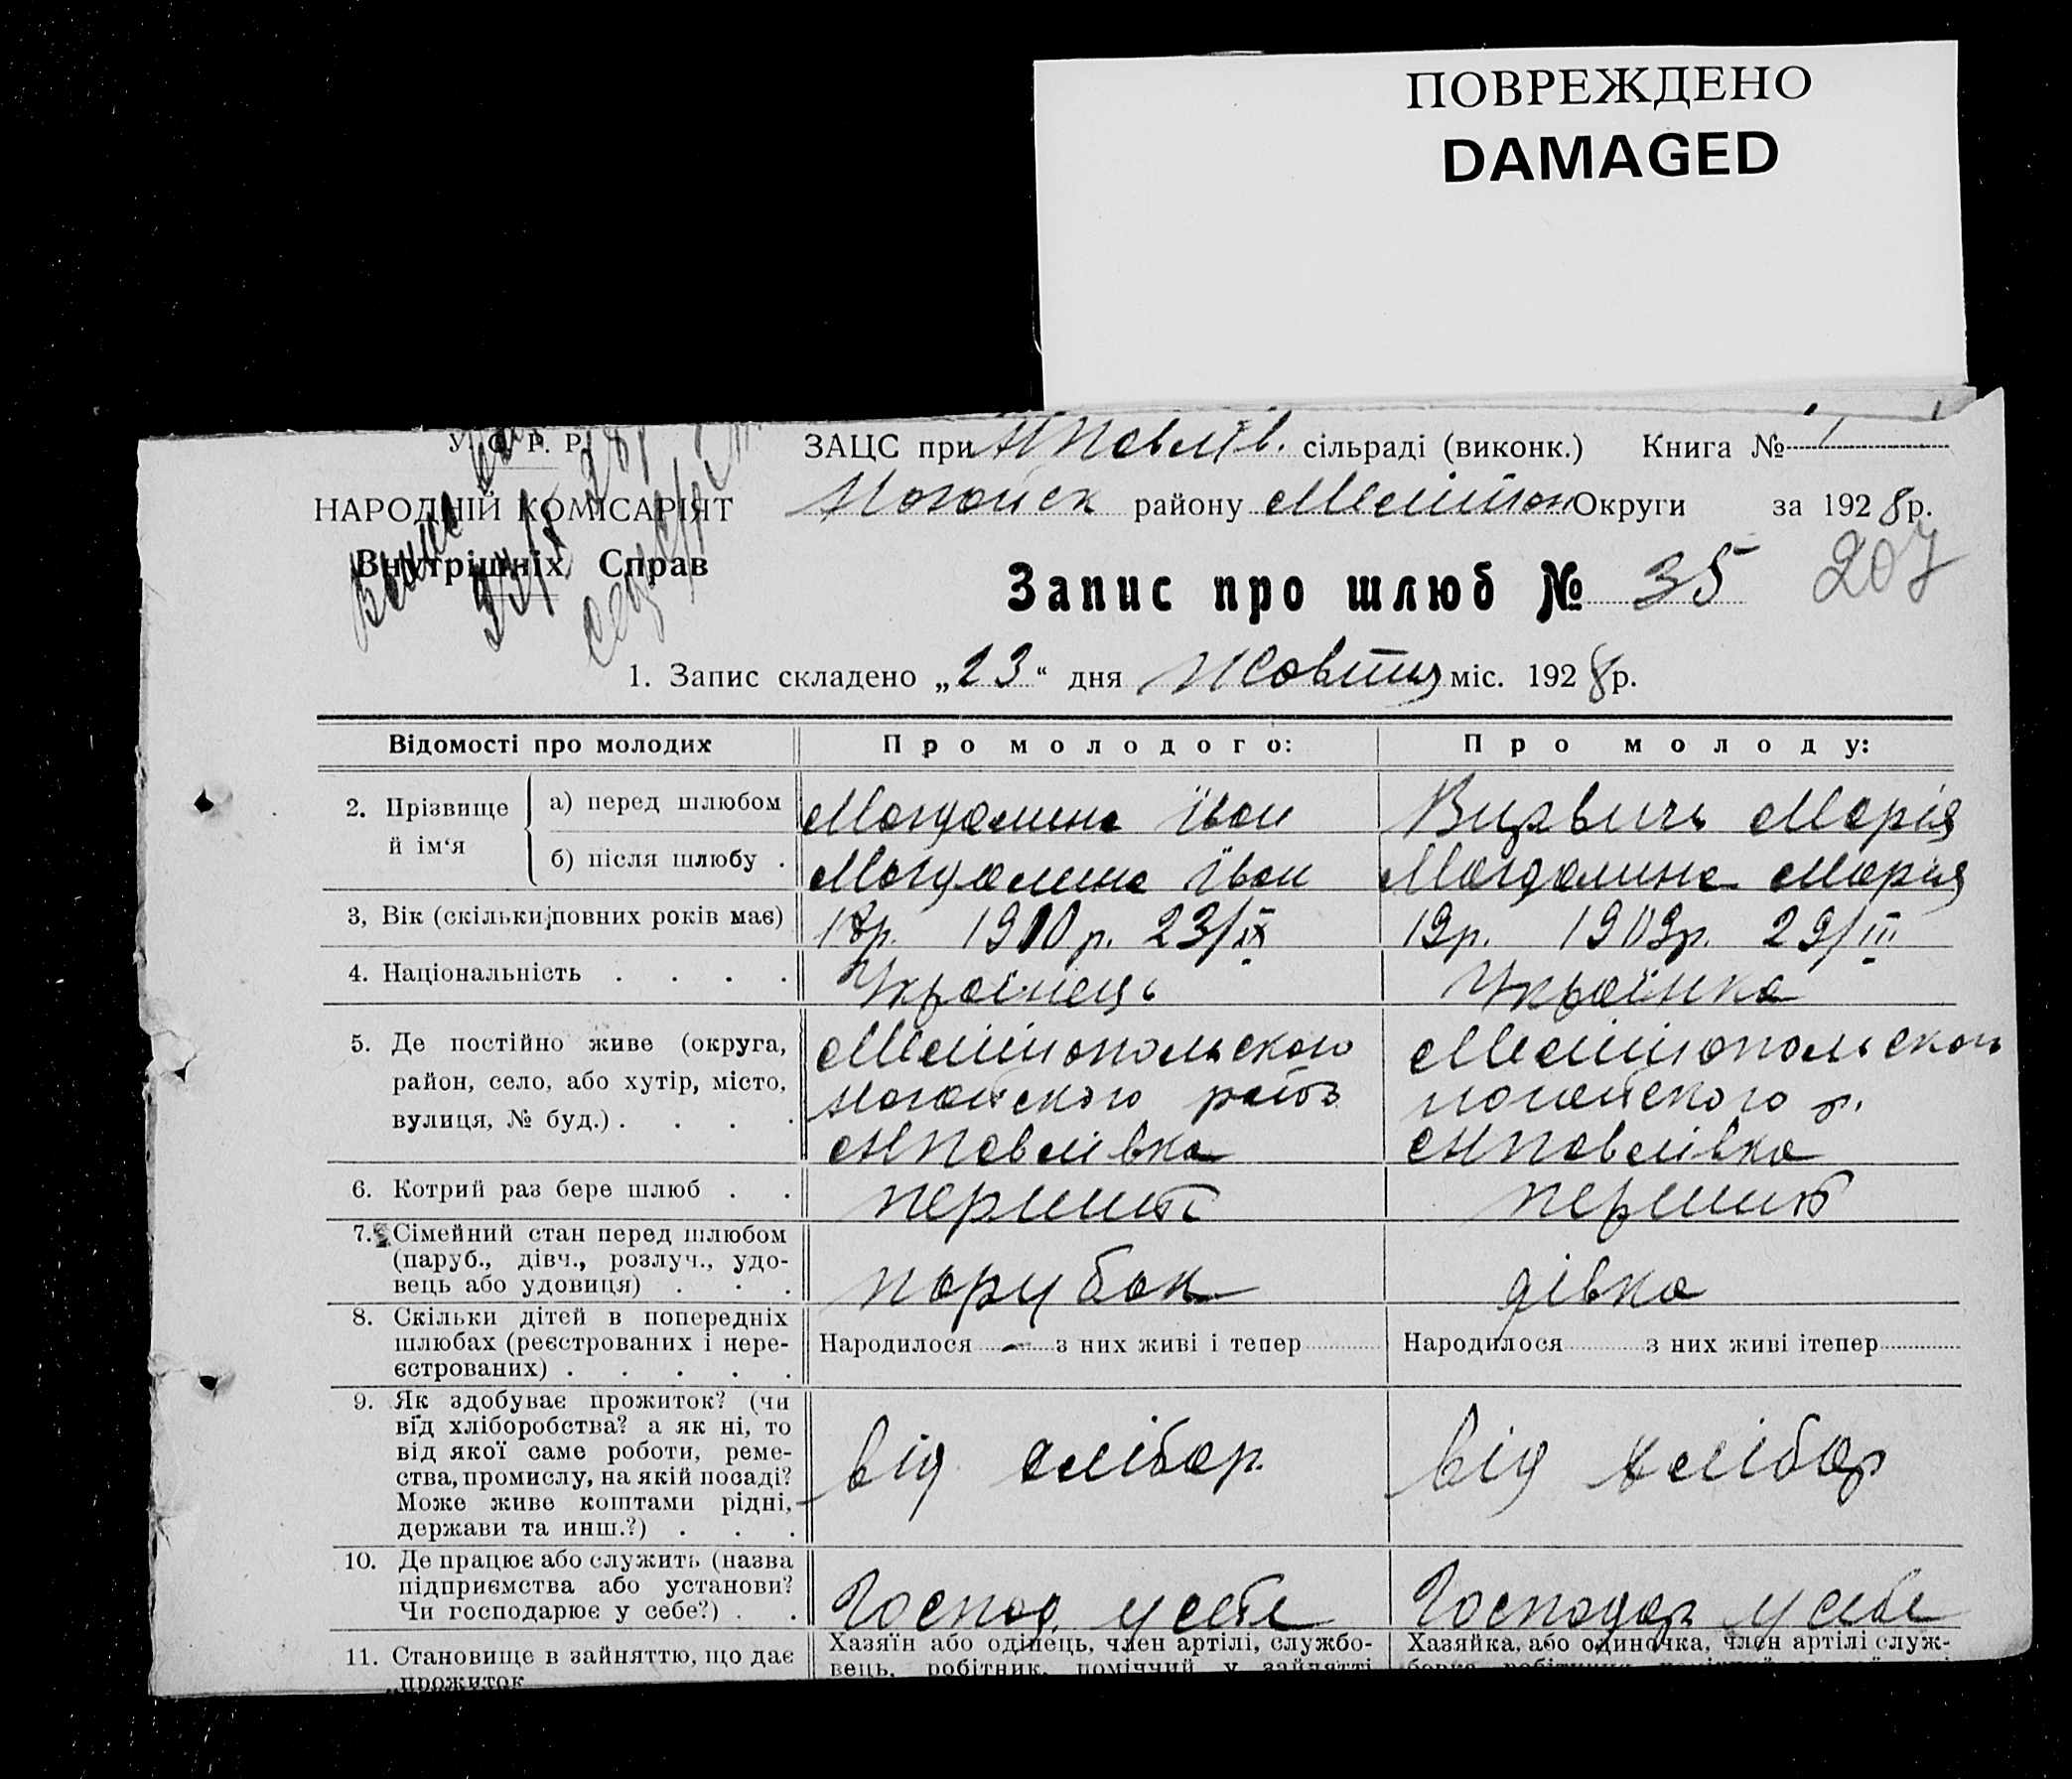 ПОВРЕЖДЕНО
DAMAGED
У. С. Р. Р.
ЗАЦС при НПавлів. сільраді (виконк.) Книга № 1
НАРОДНІЙ КОМІСАРІЯТ
Ногайск району Мелітоп Округи за 1928 р.
Внутрішніх Справ
Запис про шлюб № 35 207
1. Запис складено „23“ дня Жовтня міс. 1928 р.
Відомості про молодих Про молодого: Про молоду:
2. Прізвище й ім‘я а) перед шлюбом Магдалина Іван Марія
б) після шлюбу . Магдалина Іван Магдалина Марія
3, Вік (скільки повних років має) 18р. 1910 р. 23/IX 19р. 1909р. 29/III
4. Національність . . . . Українець Українка
5. Де постійно живе (округа, Мелітопольского Мелітопольского
район, село, або хутір, місто, Ногайского Ногайского р.
вулиця, № буд.) . . . . НПавлівка НПавлівка
6. Котрий раз бере шлюб . . перший перший
7. Сімейний стан перед шлюбом
(паруб., дівч., розлуч., удо-
вець або удовиця) . . . парубок дівка
8. Скільки дітей в попередніх
шлюбах (реєстрованих і нере- Народилося — з них живі і тепер Народилося з них живі ітепер
єстрованих) . . . . .
9. Як здобуває прожиток? (чи
від хліборобства? а як ні, то
від якої саме роботи, реме- від хлібор. від хлібор
ства, промислу, на якій посаді?
Може живе коштами рідні,
держави та инш.?) . . .
10. Де працює або служить (назва
підприємства або установи?
Чи господарює у себе?) . . Господ. у себе Господар у себе
11. Становище в зайняттю, що дає Хазяїн або одінець, член артілі, службо- Хазяйка, або одиночка, член артілі служ-
прожиток вець, робітник, поміччий у зайнятті